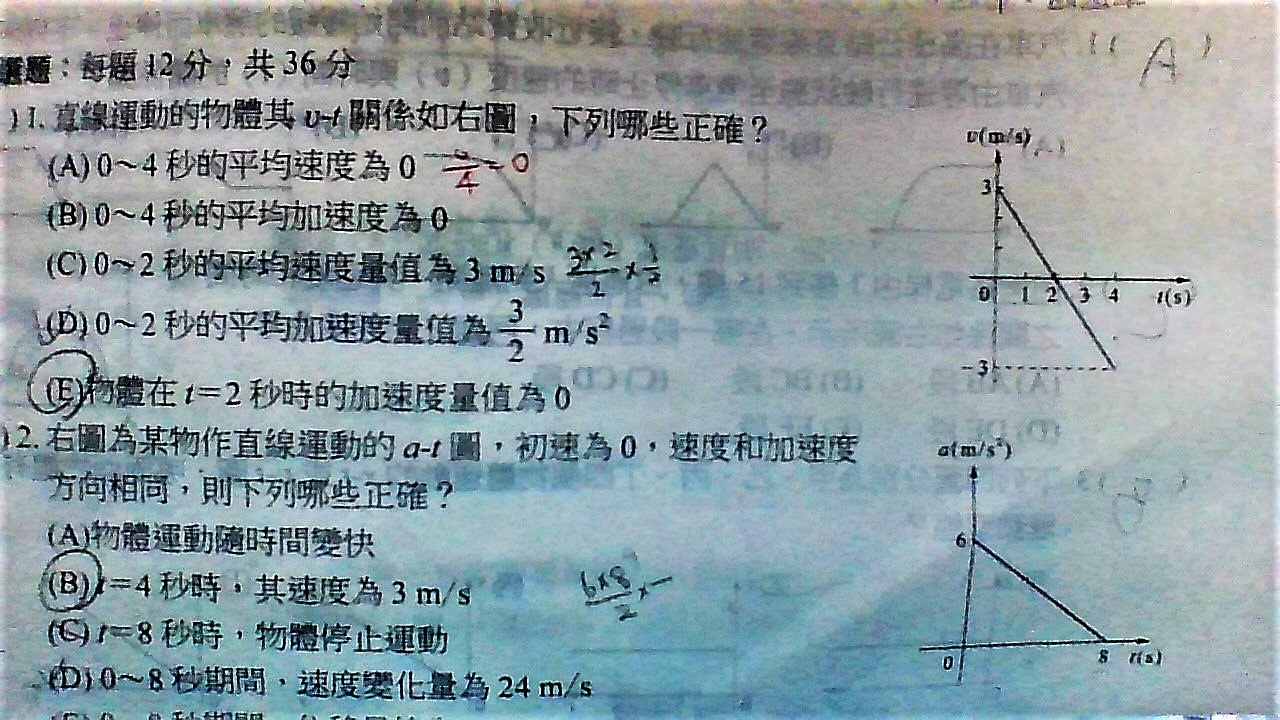 題：每題 12 分，共 36 分
( A )
) 1. 直線運動的物體其 v-t 關係如右圖，下列哪些正確？
(A) 0～4 秒的平均速度為 0 0/4=0
(B) 0～4 秒的平均加速度為 0
(C) 0～2 秒的平均速度量值為 3 m/s 3×2/2×1/2
(D) 0～2 秒的平均加速度量值為 3/2 m/s²
(E) 物體在 t＝2 秒時的加速度量值為 0
v(m/s)
3
0 1 2 3 4 t(s)
-3
) 2. 右圖為某物作直線運動的 a-t 圖，初速為 0，速度和加速度
方向相同，則下列哪些正確？
(A) 物體運動隨時間變快
(B) t＝4 秒時，其速度為 3 m/s 6×8/2×
(C) t＝8 秒時，物體停止運動
(D) 0～8 秒期間，速度變化量為 24 m/s
a(m/s²)
6
0 8 t(s)